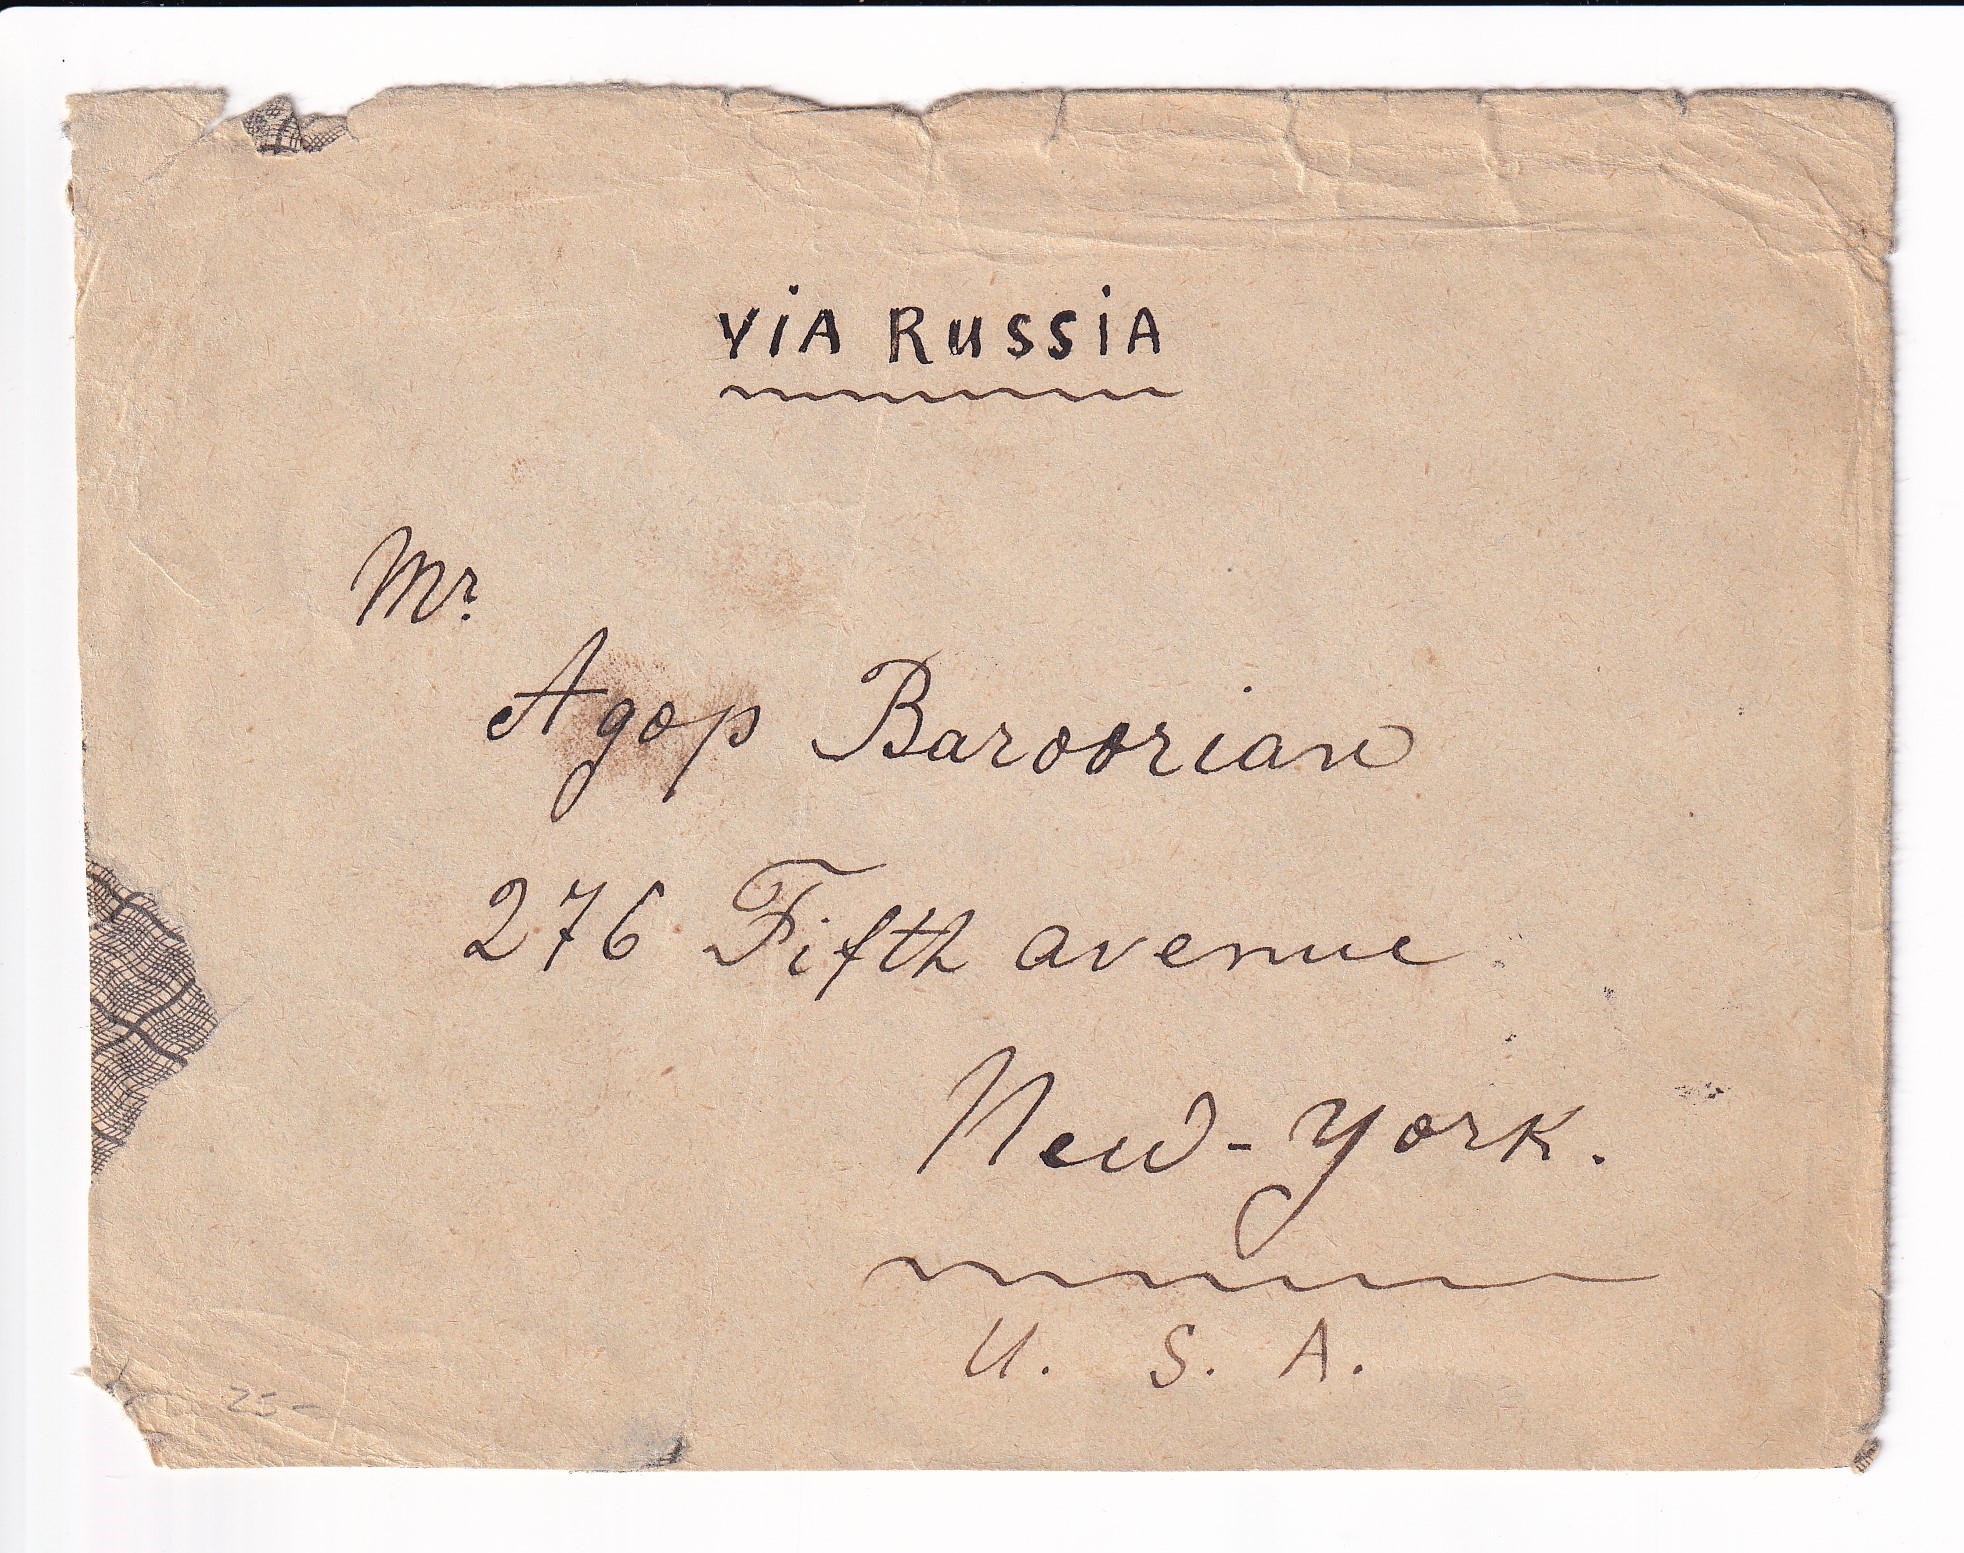 ViA RUSSiA
Mr.
Agop Baroorian
276 Fifth avenue
New-York.
U. S. A.
25-